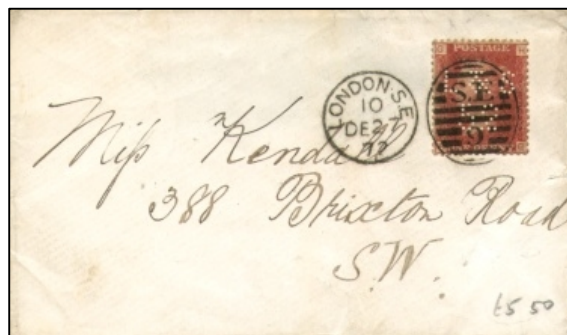 POSTAGE
LONDON·S.E
10
DE 27
S.E
9
Miss Kendall
388 Brixton Road
S.W.
£5 50